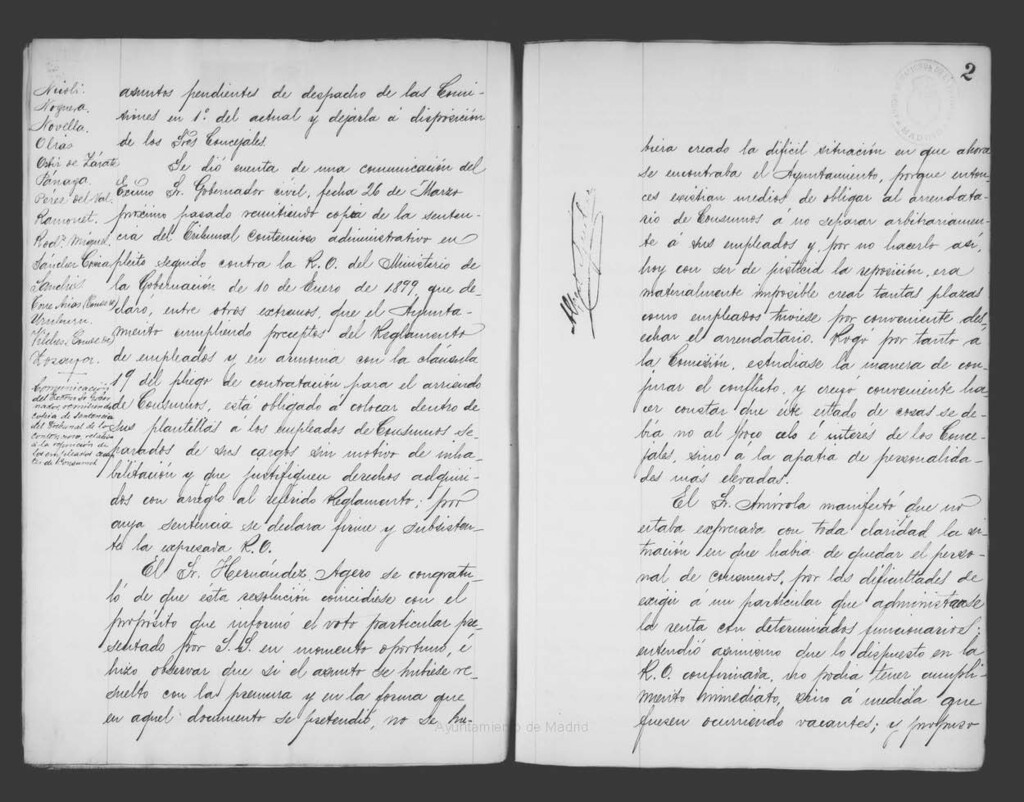 Nicoli.
Noguera.
Novella.
Olías
Ortiz de Zárate
Pánaga.
Pérez del Val.
Ramonet.
Rodz. Miguel.
Sánchez Covisa
Sandras
Torre Arias (Conde de)
Urruburu.
Vilches (Conde de)
Zozaya.
Comunicación
del Excmo Sr Gober-
nador remitiendo
copia de sentencia
del Tribunal de lo
contencioso, relativa
á la reposición de
los empleados
de Consumos
asuntos pendientes de despacho de las Comi-
siones en 1º del actual y dejarla á disposición
de los Sres Concejales
Se dió cuenta de una comunicación del
Excmo Sr. Gobernador civil, fecha 26 de Marzo
próximo pasado remitiendo copia de la senten-
cia del Tribunal contencioso administrativo en
pleito seguido contra la R. O. del Ministerio de
la Gobernación de 10 de Enero de 1899, que de-
claró, entre otros extremos, que el Ayunta-
miento cumpliendo preceptos del Reglamento
de empleados y en armonia con la cláusula
19 del pliego de contratación para el arriendo
de Consumos, está obligado á colocar dentro de
sus plantillas a los empleados de Consumos se-
parados de sus cargos sin motivo de inha-
bilitación y que justifiquen derechos adquiri-
dos con arreglo al referido Reglamento; por
cuya sentencia se declara firme y subsisten-
te la expresada R. O.
El Sr. Hernández Agero se congratu-
ló de que ésta resolución coincidiese con el
propósito que informó el voto particular pre-
sentado por S. S. en momento oportuno, é
hizo observar que si el asunto se hubiese re-
suelto con la premura y en la forma que
en aquel documento se pretendió, no se hu-
Ayuntamiento de Madrid
2
MADRID
biera creado la difícil situación en que ahora
se encontraba el Ayuntamiento, porque enton-
ces existian medios de obligar al arrendata-
rio de Consumos á no separar arbitrariamen-
te á sus empleados y, por no hacerlo así,
hoy con ser de justicia la reposición, era
materialmente imposible crear tantas plazas
como empleados tuviese por conveniente des-
echar el arrendatario. Rogó por tanto á
la Comisión, estudiase la manera de con-
jurar el conflicto, y creyó conveniente ha-
cer constar que éste estado de cosas se de-
bía no al poco celo é interés de los Conce-
jales, sino á la apatia de personalida-
des más elevadas.
El Sr. Amírola manifestó que no
estaba expresada con toda claridad la si-
tuación en que había de quedar el perso-
nal de consumos, por las dificultades de
exigir á un particular que administrase
la renta con determinados funcionarios;
entendió asimismo que lo dispuesto en la
R. O. confirmada, no podía tener cumpli-
miento inmediato, sino á medida que
fuesen ocurriendo vacantes; y propuso